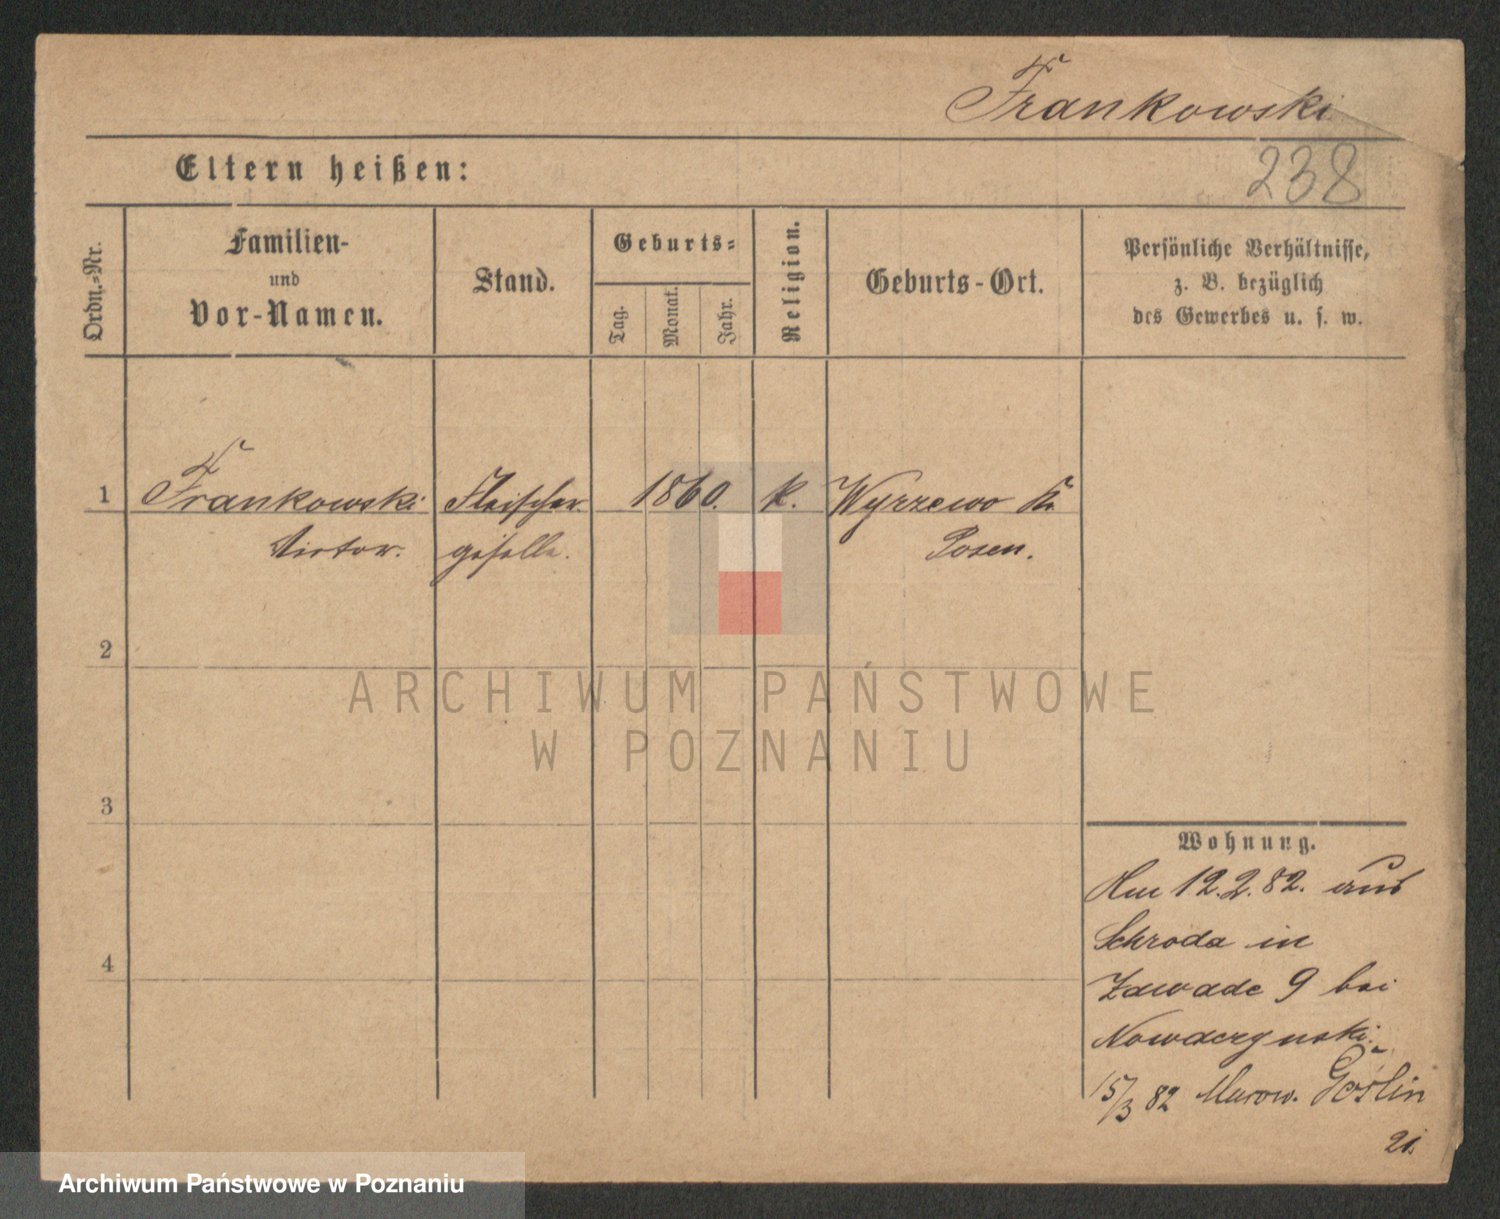 Frankowski
238
Eltern heißen:
Ordn.-Nr.
Familien-
und
Vor-Namen.
Stand.
Geburts-
Tag.
Monat.
Jahr.
Religion.
Geburts-Ort.
Persönliche Verhältnisse,
z. B. bezüglich
des Gewerbes u. s. w.
1 Frankowski Fleischer 1860. k. Wyrzewo Kr.
Victor. geselle. Posen.
2
ARCHIWUM PAŃSTWOWE
W POZNANIU
3
Wohnung.
Am 12.2.82. aus
Schroda in
4
Zawade 9 bei
15/3 82 Murow. Goślin
21.
Archiwum Państwowe w Poznaniu